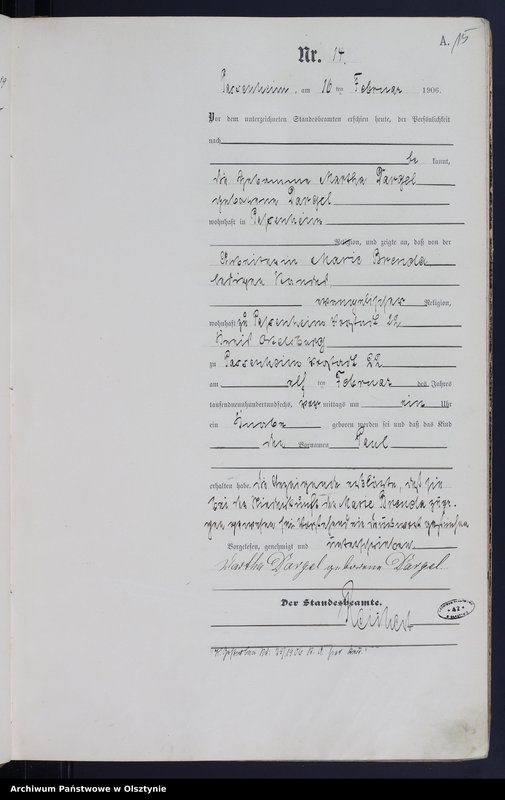 A. 15
Nr. 14.
Passenheim, am 16 ten Februar 1906.
Vor dem unterzeichneten Standesbeamten erschien heute, der Persönlichkeit
nach
be kannt,
die Hebamme Martha Dargel
geborene Dargel
wohnhaft in Passenheim
Religion, und zeigte an, daß von der
Arbeiterin Marie Brenda
ledigen Standes
evangelischer Religion,
wohnhaft zu Passenheim Vorstadt 22
Kreis Ortelsburg
zu Passenheim Vorstadt 22
am elf ten Februar des Jahres
tausendneunhundertundsechs, vor mittags um ein Uhr
ein Knabe geboren worden sei und daß das Kind
den Vornamen Paul
erhalten habe. Die Anzeigende erklärte, daß sie
bei der Niederkunft der Marie Brenda zuge-
gen gewesen sei. Vorstehend ein Druckwort gestrichen
Vorgelesen, genehmigt und unterschrieben
Martha Dargel geborene Dargel.
Der Standesbeamte.
Reichert
Archiwum Państwowe w Olsztynie